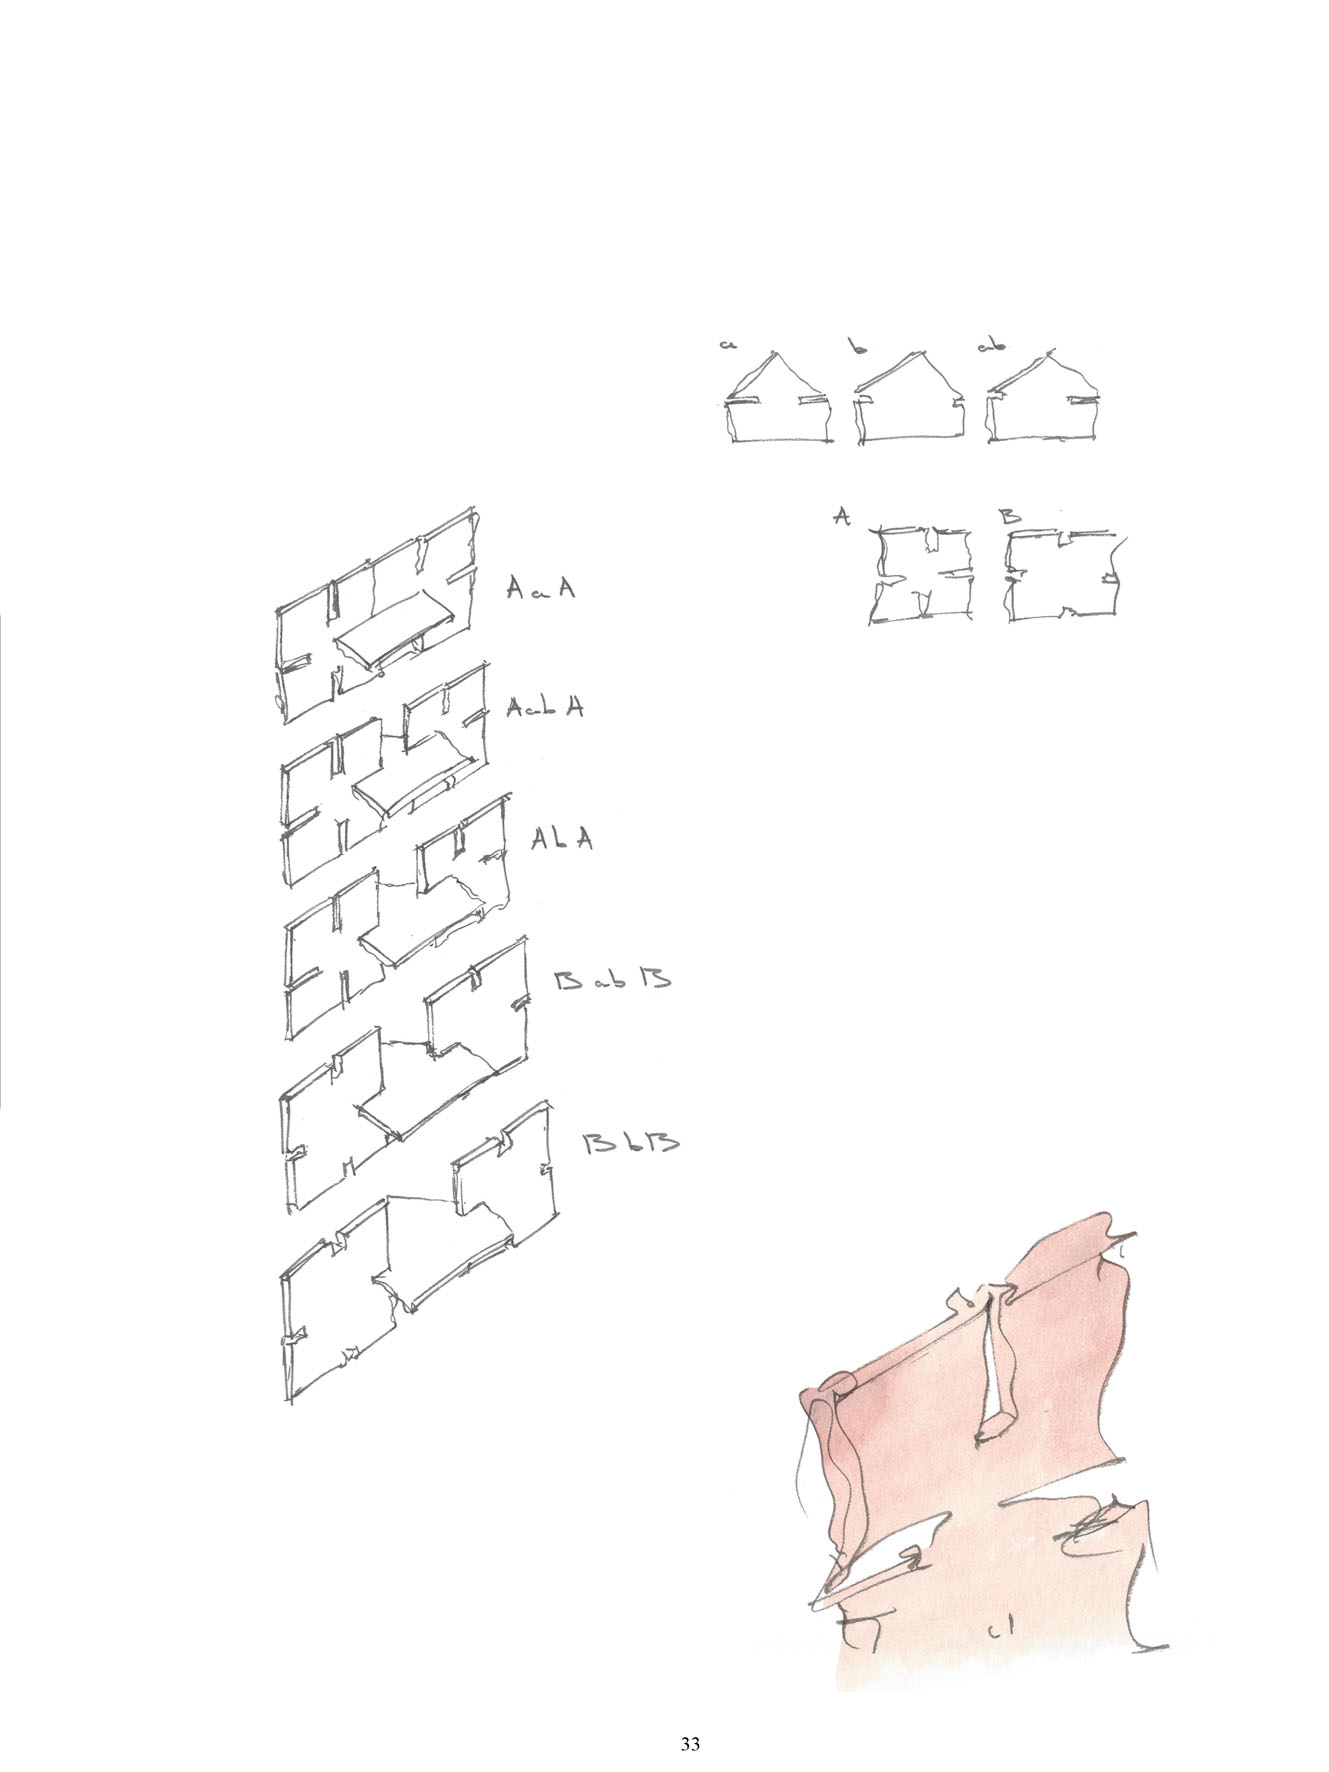 a b ab
A B
A a A
A ab A
A b A
B ab B
B b B
33